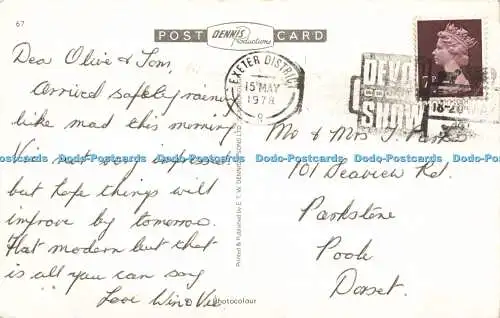 67
POST DENNIS Productions CARD
EXETER DISTRICT
15 MAY
1978
DEVON
COUNTY
SHOW
18-20
Dear Olive & Tom,
Arrived safely raining
like mad this morning
not very impressed
but hope things will
improve by tomorrow.
Flat modern but that
is all you can say
Love Win & Vic
Mr & Mrs T.
101 Seaview Rd.
Parkstone
Poole
Dorset.
Printed & Published by E. T. W. DENNIS & SONS LTD
Photocolour
Dodo-Postcards Dodo-Postcards Dodo-Postcards Dodo-Postcards Dodo-Postcards